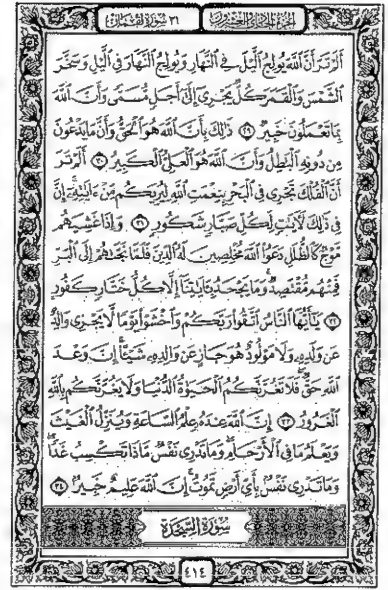 الجزء الحادي والعشرون ٣١ سورة لقمان
أَلَمْ تَرَ أَنَّ ٱللَّهَ يُولِجُ ٱلَّيْلَ فِى ٱلنَّهَارِ وَيُولِجُ ٱلنَّهَارَ فِى ٱلَّيْلِ وَسَخَّرَ
ٱلشَّمْسَ وَٱلْقَمَرَ كُلٌّ يَجْرِىٓ إِلَىٰٓ أَجَلٍ مُّسَمًّى وَأَنَّ ٱللَّهَ
بِمَا تَعْمَلُونَ خَبِيرٌ ٢٩ ذَٰلِكَ بِأَنَّ ٱللَّهَ هُوَ ٱلْحَقُّ وَأَنَّ مَا يَدْعُونَ
مِن دُونِهِ ٱلْبَٰطِلُ وَأَنَّ ٱللَّهَ هُوَ ٱلْعَلِىُّ ٱلْكَبِيرُ ٣٠ أَلَمْ تَرَ
أَنَّ ٱلْفُلْكَ تَجْرِى فِى ٱلْبَحْرِ بِنِعْمَتِ ٱللَّهِ لِيُرِيَكُم مِّنْ ءَايَٰتِهِۦٓ إِنَّ
فِى ذَٰلِكَ لَءَايَٰتٍ لِّكُلِّ صَبَّارٍ شَكُورٍ ٣١ وَإِذَا غَشِيَهُم
مَّوْجٌ كَٱلظُّلَلِ دَعَوُا۟ ٱللَّهَ مُخْلِصِينَ لَهُ ٱلدِّينَ فَلَمَّا نَجَّىٰهُمْ إِلَى ٱلْبَرِّ
فَمِنْهُم مُّقْتَصِدٌ وَمَا يَجْحَدُ بِـَٔايَٰتِنَآ إِلَّا كُلُّ خَتَّارٍ كَفُورٍ
٣٢ يَٰٓأَيُّهَا ٱلنَّاسُ ٱتَّقُوا۟ رَبَّكُمْ وَٱخْشَوْا۟ يَوْمًا لَّا يَجْزِى وَالِدٌ
عَن وَلَدِهِۦ وَلَا مَوْلُودٌ هُوَ جَازٍ عَن وَالِدِهِۦ شَيْـًٔا إِنَّ وَعْدَ
ٱللَّهِ حَقٌّ فَلَا تَغُرَّنَّكُمُ ٱلْحَيَوٰةُ ٱلدُّنْيَا وَلَا يَغُرَّنَّكُم بِٱللَّهِ
ٱلْغَرُورُ ٣٣ إِنَّ ٱللَّهَ عِندَهُۥ عِلْمُ ٱلسَّاعَةِ وَيُنَزِّلُ ٱلْغَيْثَ
وَيَعْلَمُ مَا فِى ٱلْأَرْحَامِ وَمَا تَدْرِى نَفْسٌ مَّاذَا تَكْسِبُ غَدًا
وَمَا تَدْرِى نَفْسٌۢ بِأَىِّ أَرْضٍ تَمُوتُ إِنَّ ٱللَّهَ عَلِيمٌ خَبِيرٌۢ ٣٤
سُورَةُ السَّجْدَةِ
٤١٤